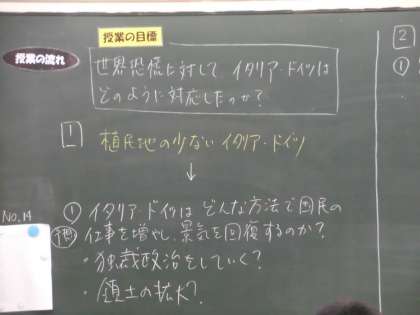 授業の目標
授業の流れ
世界恐慌に対して、イタリア・ドイツは
どのように対応したのか?
1 植民地の少ないイタリア・ドイツ
↓
① イタリア・ドイツは どんな方法で国民の
予想 仕事を増やし、景気を回復するのか?
・独裁政治をしていく?
・領土の拡大?
No.14
2
①